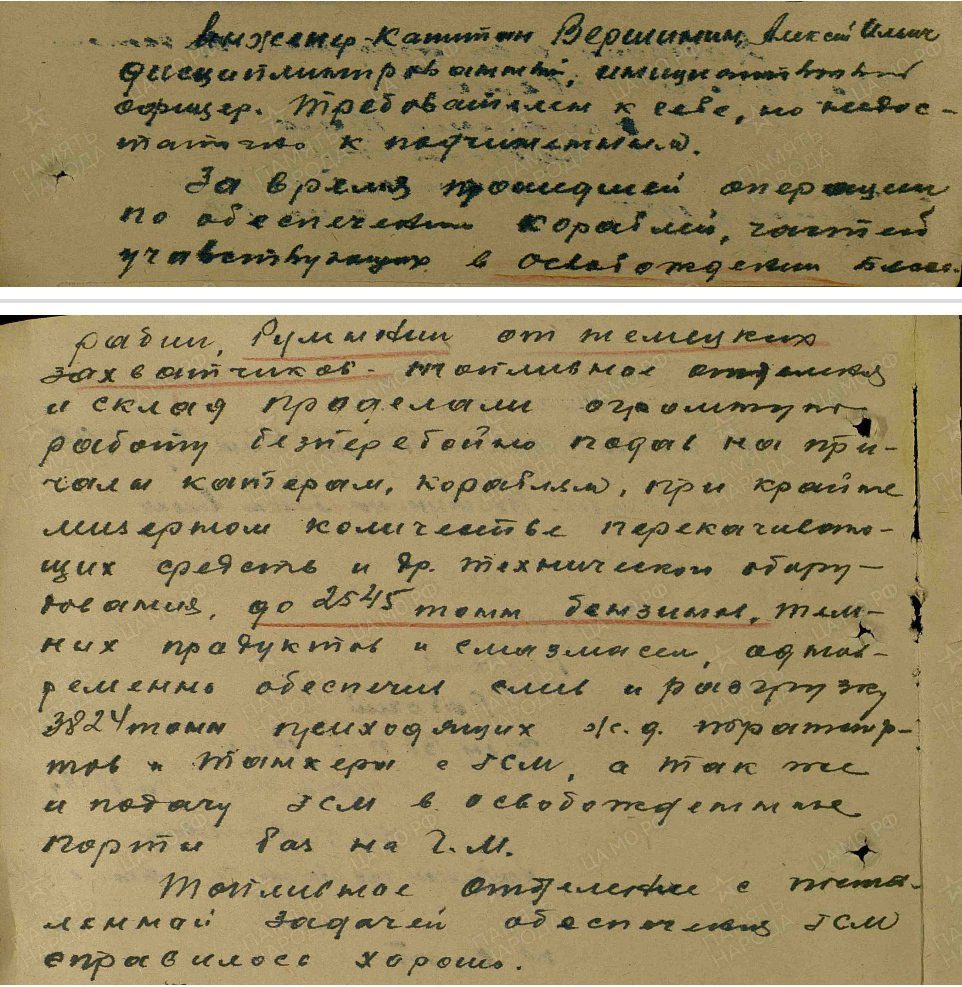 Инженер-капитан Вершинин, Алексей Ильич
дисциплинированный, инициативный
офицер. Требователен к себе, но недос-
таточно к подчиненным.
За время прошедшей операции
по обеспечению кораблей, частей
участвующих в освобождении Бесса-
рабии, Румынии от немецких
захватчиков - топливное отделение
и склад проделали огромную
работу безперебойно подав на при-
чалы катерам, кораблям, при крайне
мизерном количестве перекачиваю-
щих средств и др. технической обору-
дования, до 2545 тонн бензинов, тем-
ных продуктов и смазмасел, одnов-
ременно обеспечив слив и разгрузку
3824 тонн приходящих ж.д. транспор-
тов и танкера с ГСМ, а так же
и подачу ГСМ в освобожденные
порты баз на Ч.М.
Топливное отделение с постав-
ленной задачей обеспечения ГСМ
справилось хорошо.